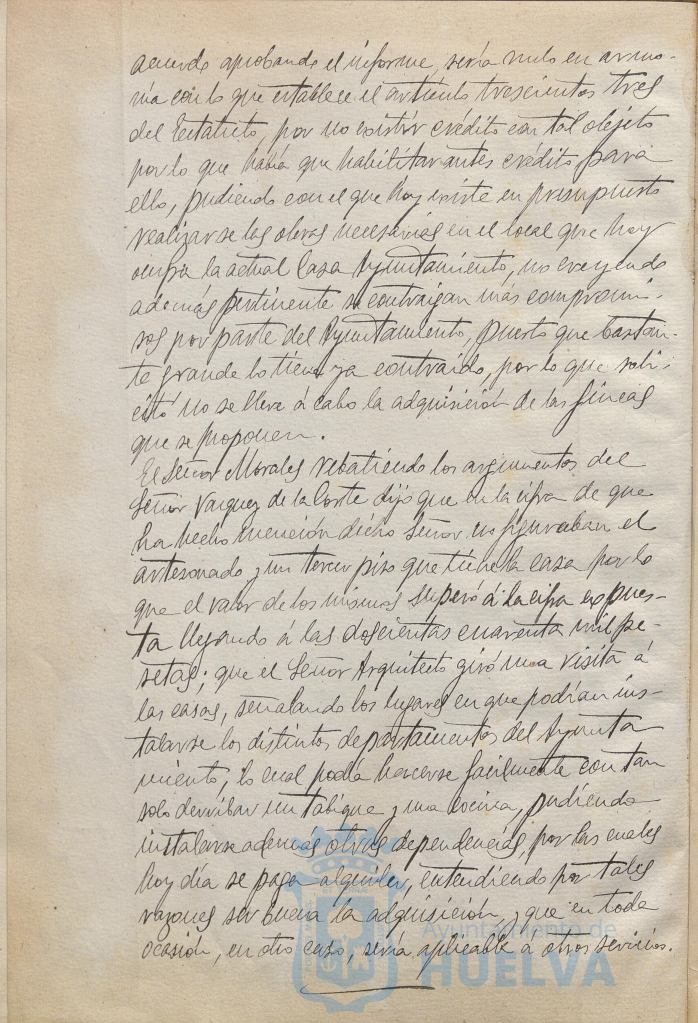 acuerdo aprobando el informe, sería nulo en armo-
nía con lo que establece el artículo trescientos tres
del Estatuto, por no existir crédito con tal objeto
por lo que había que habilitar antes crédito para
ello, pudiendo con el que hoy existe en presupuesto
realizarse las obras necesarias en el local que hoy
ocupa la actual Casa Ayuntamiento, no creyendo
además pertinente se contraigan más compromi-
sos por parte del Ayuntamiento, puesto que bastan-
te grande lo tiene ya contraido, por lo que soli-
citó no se lleve á cabo la adquisición de las fincas
que se proponen.
El Señor Morales rebatiendo los argumentos del
Señor Vazquez de la Corte dijo que en la cifra de que
ha hecho mención dicho Señor no figuraban el
artesonado y un tercer piso que tiene la casa por lo
que el valor de los mismos superó á la cifra expues-
ta llegando á las doscientas cuarenta mil pe-
setas; que el Señor Arquitecto giró una visita á
las casas, señalando los lugares en que podrían ins-
talarse los distintos departamentos del Ayunta
miento, lo cual podía hacerse facilmente con tan
solo derribar un tabique y una cocina, pudiendo
instalarse ademas otras dependencias, por las cuales
hoy día se paga alquiler, entendiendo por tales
razones ser buena la adquisición, y que en toda
ocasión, en otro caso, sería aplicable a otros servicios.
Ayuntamiento de
HUELVA